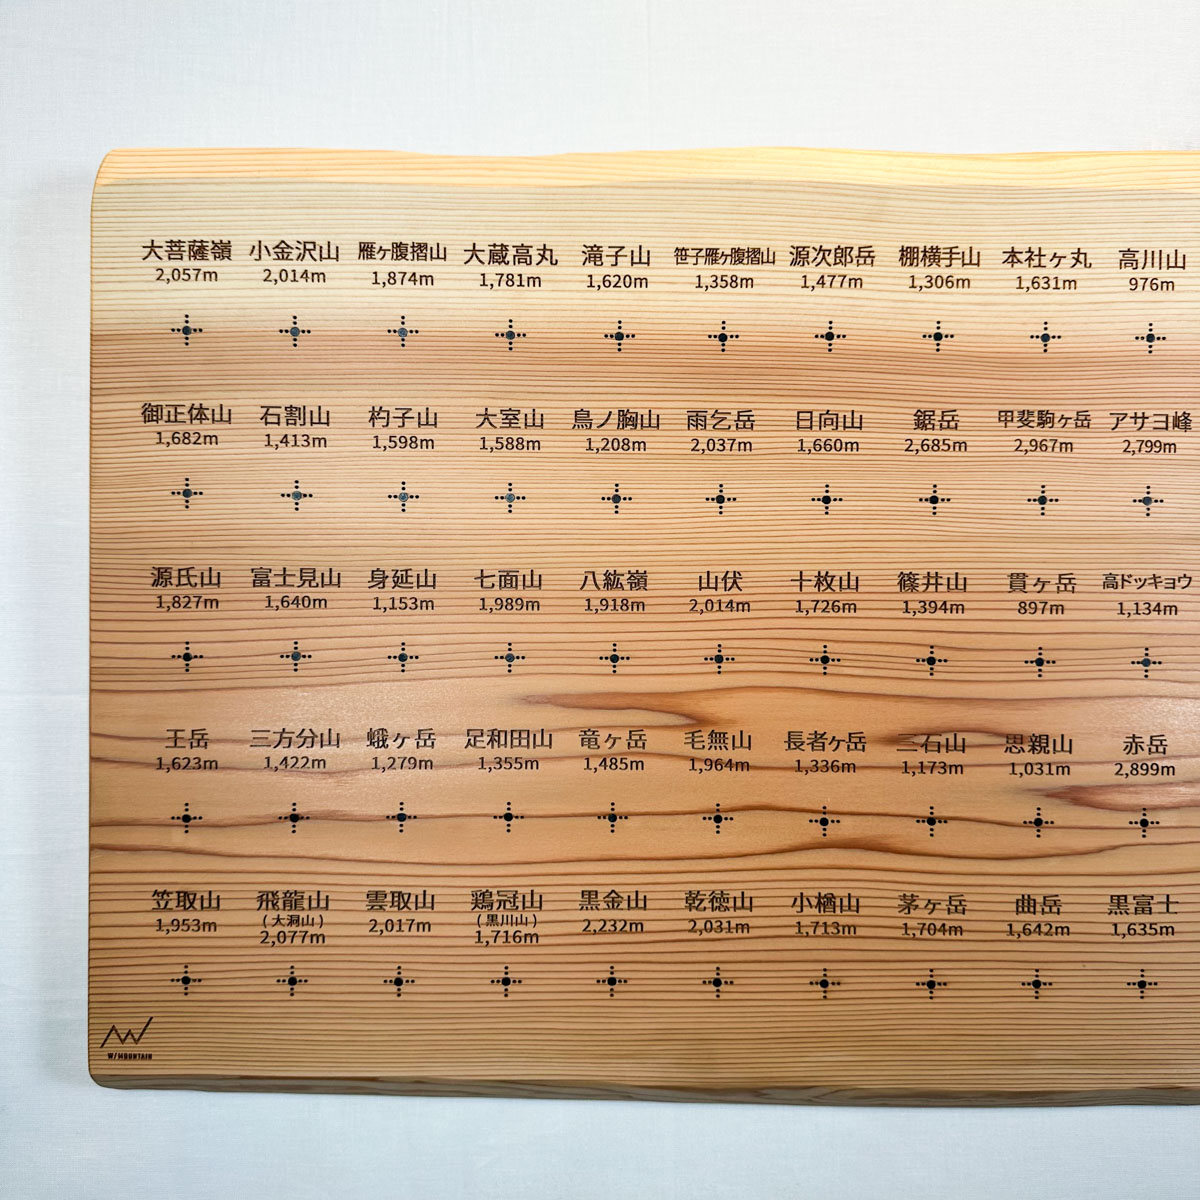 大菩薩嶺 小金沢山 雁ヶ腹摺山 大蔵高丸 滝子山 笹子雁ヶ腹摺山 源次郎岳 棚横手山 本社ヶ丸 高川山
2,057m 2,014m 1,874m 1,781m 1,620m 1,358m 1,477m 1,306m 1,631m 976m
御正体山 石割山 杓子山 大室山 鳥ノ胸山 雨乞岳 日向山 鋸岳 甲斐駒ヶ岳 アサヨ峰
1,682m 1,413m 1,598m 1,588m 1,208m 2,037m 1,660m 2,685m 2,967m 2,799m
源氏山 富士見山 身延山 七面山 八紘嶺 山伏 十枚山 篠井山 貫ヶ岳 高ドッキョウ
1,827m 1,640m 1,153m 1,989m 1,918m 2,014m 1,726m 1,394m 897m 1,134m
王岳 三方分山 蛾ヶ岳 足和田山 竜ヶ岳 毛無山 長者ヶ岳 三石山 思親山 赤岳
1,623m 1,422m 1,279m 1,355m 1,485m 1,964m 1,336m 1,173m 1,031m 2,899m
笠取山 飛龍山 雲取山 鶏冠山 黒金山 乾徳山 小楢山 茅ヶ岳 曲岳 黒富士
(大洞山) (黒川山)
1,953m 2,077m 2,017m 1,716m 2,232m 2,031m 1,713m 1,704m 1,642m 1,635m
W/MOUNTAIN